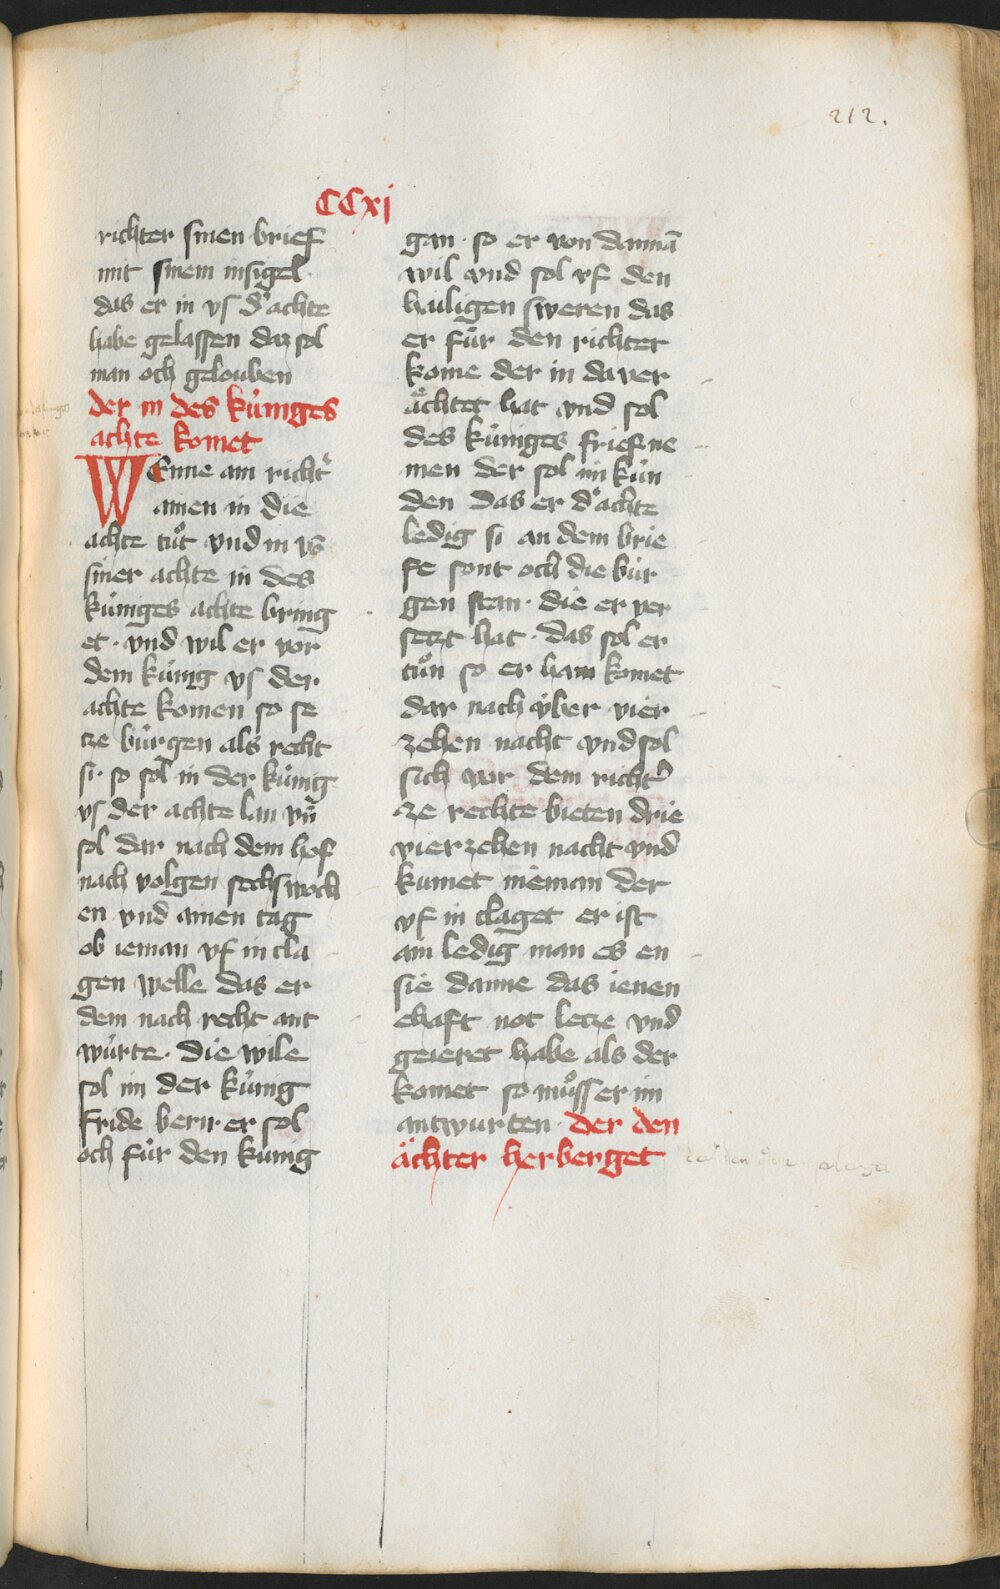 212.
CCxj
richter sinen brief
mit sinem insigel.
das er in vs d᾽ achte
habe gelassen daz sol
man och gelouben
der in des kúniges
achte komet
WEnne ain richt᾽
ainen in die
achte tuͦt vnd in vō
siner achte in des
kúniges achte bring
et · vnd wil er vor
dem kúnig vs der
achte komen so se
tze búrgen als recht
si · so sol in der kúnig
vs der achte lan vn̄
sol dar nach dem hof
nach volgen sechs woch
en vnd ainen tag
ob ieman vf in cla
gen welle das er
dem nach recht ant
wúrte · die wile
sol im der kúnig
fride bern · er sol
och fúr den kunig
gan · so er von dannā
wil vnd sol vf den
hailigen sweren das
er fúr den richter
kome der in da ver
aͤchtet hat vnd sol
des kúniges brief ne
men der sol im kún
den das er d᾽ achte
ledig si an dem brie
fe sont och die búr
gen stan · die er ver
setzt hat · das sol er
tuͦn so er haim komet
dar nach vber vier
zehen nacht vnd sol
sich vor dem richt᾽
ze rechte bieten drie
vierzehen nacht vnd
kumet nieman der
vf in claget er ist
ain ledig man es en
sie danne das ienen
ehaft not letze vnd
geieret habe als der
komet so muͦss er im
antwurten · der den
aͤchter herberget